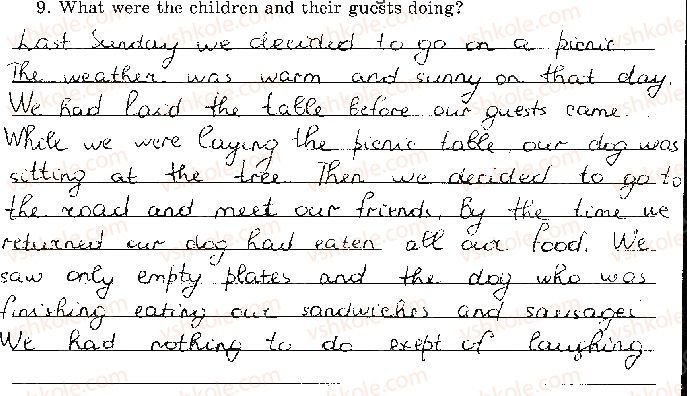 9. What were the children and their guests doing?
Last Sunday we decided to go on a picnic
The weather was warm and sunny on that day.
We had laid the table before our guests came.
While we were laying the picnic table our dog was
sitting at the tree. Then we decided to go to
the road and meet our friends. By the time we
returned our dog had eaten all our food. We
saw only empty plates and the dog who was
finishing eating our sandwiches and sausages
We had nothing to do exept of laughing